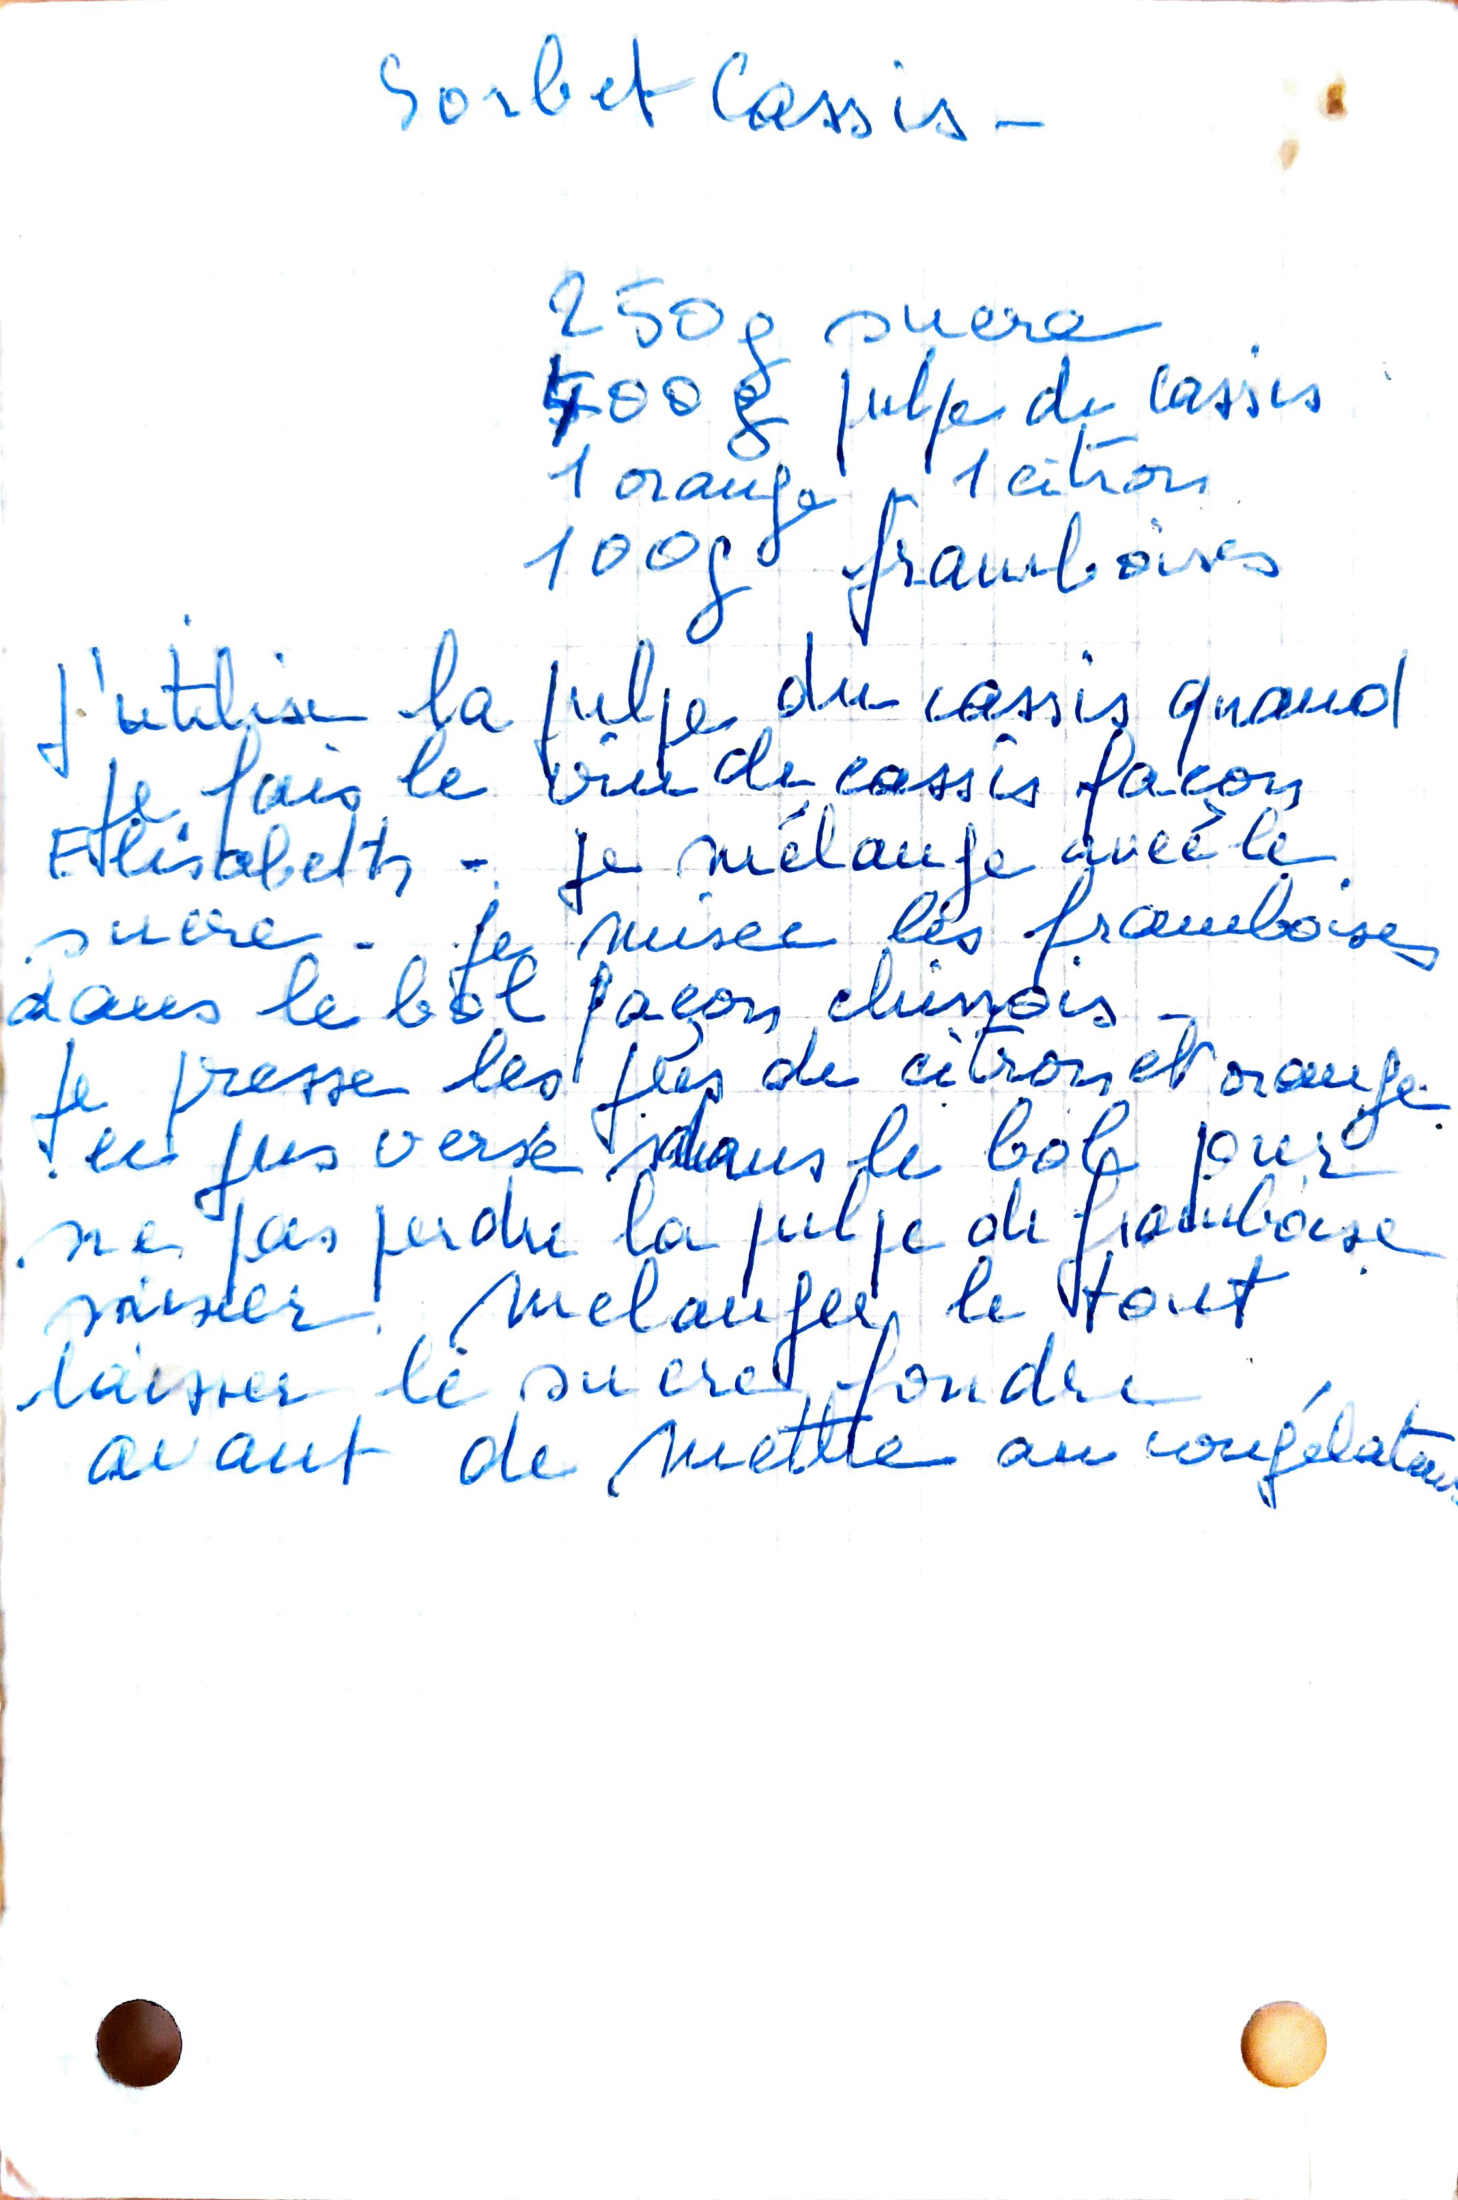 Sorbet Cassis -
250g sucre
g pulpe de cassis
1 orange 1 citron
100g framboises
J'utilise la pulpe du cassis quand
je fais le vin de cassis façon
Elisabeth - je mélange avec le
sucre - je mixe les framboises
dans le bol façon chinois -
je presse les jus de citron et orange
ce jus versé dans le bol pour
ne pas perdre la pulpe de framboise
mixer. Melanger le tout
laisser le sucre fondre
avant de mettre au congélateur